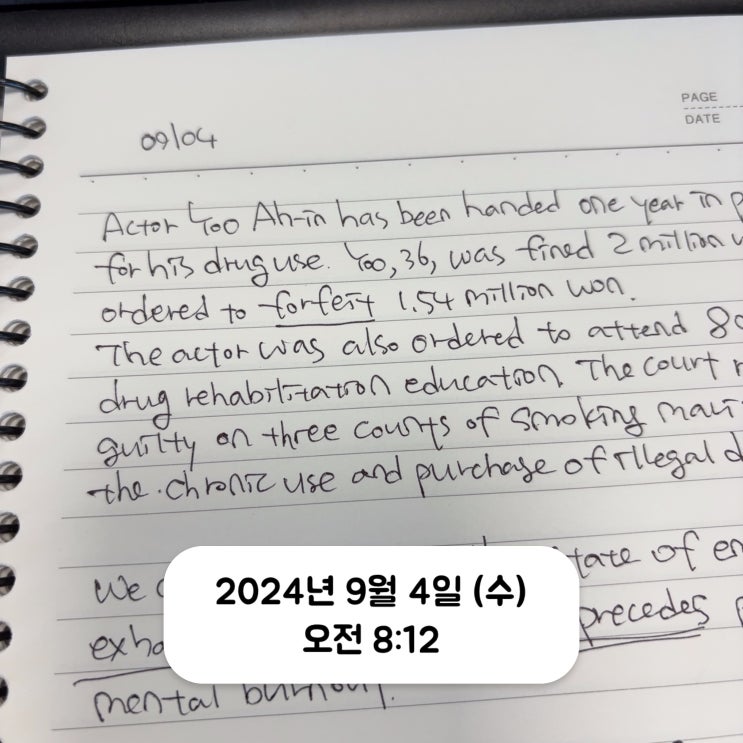 PAGE
DATE
09/04
Actor Yoo Ah-in has been handed one year in p
for his drug use. Yoo, 36, was fined 2 million w
ordered to forfeit 1.54 million won.
The actor was also ordered to attend 80
drug rehabilitation education. The court r
guilty on three counts of smoking mari
the chronic use and purchase of illegal d
We state of em
exha precedes p
mental burnout.
2024년 9월 4일 (수)
오전 8:12